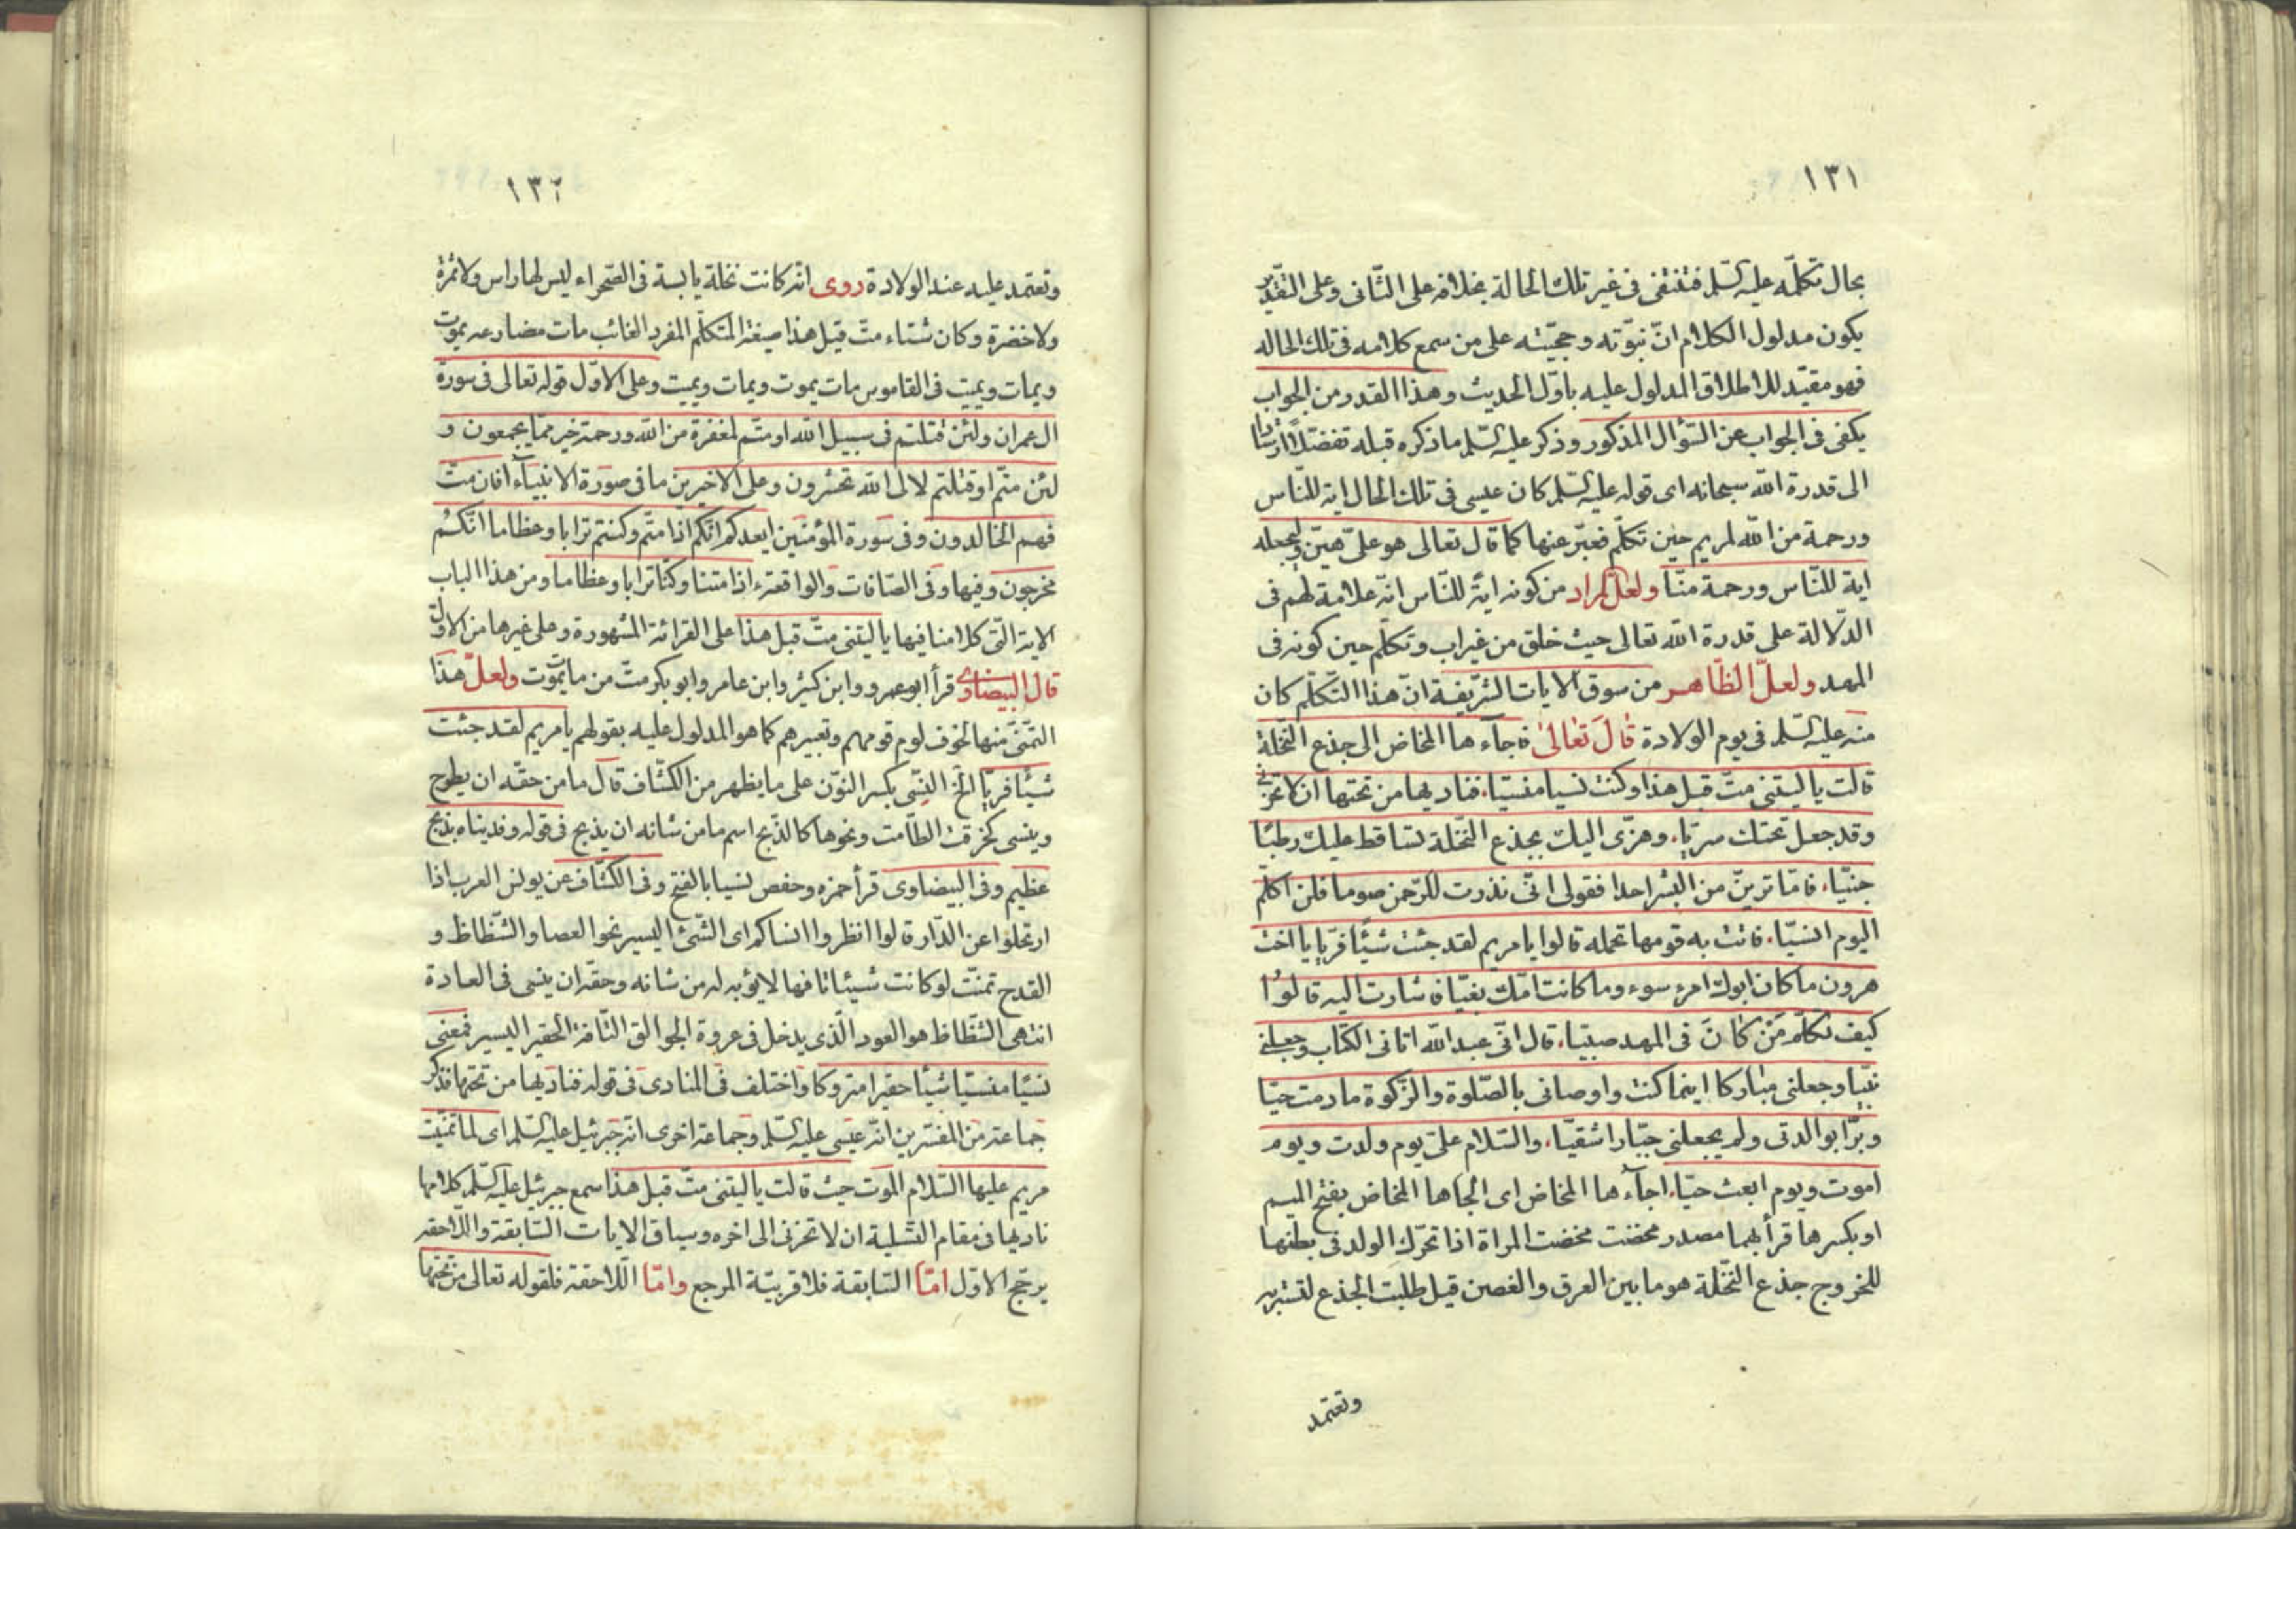 ١٣١
بحال تكلّمه عليه السّلم فتنتفى فى غير تلك الحالة بخلافه على الثّانى وعلى التقدير
يكون مدلول الكلام انّ نبوّته وحجيّته على من سمع كلامه فى تلك الحاله
فهو مقيّد للاطلاق المدلول عليه باوّل الحديث وهذا القدر من الجواب
يكفى فى الجواب عن السّؤال المذكور وذكر عليه السّلم ما ذكره قبله تفضّلا وارشادا
الى قدرة اللّه سبحانه اى قوله عليه السّلم كان عيسى فى تلك الحال اية للنّاس
ورحمة من اللّه لمريم حين تكلّم فعبّر عنها كما قال تعالى هو علىّ هيّن ولنجعله
اية للنّاس ورحمة منّا ولعلّ المراد من كونه اية للنّاس انّه علامة لهم فى
الدّلالة على قدرة اللّه تعالى حيث خلق من غير اب وتكلّم حين كونه فى
المهد ولعلّ الظّاهر من سوق الايات الشّريفة انّ هذا التّكلّم كان
منه عليه السّلم فى يوم الولادة قال تعالى فاجآءها المخاض الى جذع النّخلة
قالت يا ليتنى متّ قبل هذا وكنت نسيا منسيّا، فناديها من تحتها ان لا تحزنى
وقد جعل تحتك سريّا، وهزّى اليك بجذع النّخلة تساقط عليك رطبًا
جنيّا، فامّا ترينّ من البشر احدا فقولى انّى نذرت للرّحمن صوما فلن اكلّم
اليوم انسيّا، فاتت به قومها تحمله قالوا يا مريم لقد جئت شيئًا فريّا يا اخت
هرون ما كان ابوك امرء سوء وما كانت امّك بغيّا فاشارت اليه قالوا
كيف نكلّم مَنْ كان فى المهد صبيّا، قال انّى عبد اللّه اتانى الكتاب وجعلنى
نبيّا وجعلنى مباركا اينما كنت واوصانى بالصّلوة والزّكوة ما دمت حيّا
وبرّا بوالدتى ولم يجعلنى جبّارا شقيّا، والسّلام علىّ يوم ولدت ويوم
اموت ويوم ابعث حيّا، اجآءها المخاض اى الجاها المخاض بفتح الميم
او بكسرها قرأ بهما مصدر مخضت مخضت المراة اذا تحرّك الولد فى بطنها
للخروج جذع النّخلة هو ما بين العرق والغصن قيل طلبت الجذع لتستر به
وتعتمد
١٣٢
وتعتمد عليه عند الولادة روى انّه كانت نخلة يابسة فى الصّحراء ليس لها راس ولا ثمرة
ولا خضرة وكان شتاء متّ قيل هذا صيغة المتكلّم المفرد الغائب مات مضارعه يموت
ويمات ويميت فى القاموس مات يموت ويمات ويميت وعلى الاوّل قوله تعالى فى سورة
ال عمران ولئن قتلتم فى سبيل اللّه او متّم لمغفرة من اللّه ورحمة خير ممّا يجمعون و
لئن متّم او قتلتم لالى اللّه تحشرون وعلى الاخيرين ما فى صورة الانبيآء افان متّ
فهم الخالدون وفى سورة المؤمنين ايعدكم انّكم اذا متّم وكنتم ترابا وعظاما انّكم
مخرجون وفيها وفى الصّافات والواقعة ءاذا متنا وكنّا ترابا وعظاما ومن هذا الباب
الاية الّتى كلامنا فيها يا ليتنى متّ قبل هذا على القرائة المشهورة وعلى غيرها من الاوّل
قال البيضاوى قرأ ابو عمرو وابن كثير وابن عامر وابو بكر متّ من مات يموت ولعلّ هذا
التمنّى منها لخوف لوم قومهم وتعييرهم كما هو المدلول عليه بقولهم يا مريم لقد جئت
شيئًا فريّا الخ النِسى بكسر النّون على ما يظهر من الكشّاف قال ما من حقّه ان يطرح
وينسى كخرقة الطّامث ونحوها كالذّبح اسم ما من شانه ان يذبح فى قوله وفديناه بذبح
عظيم وفى البيضاوى قرأ حمزه وحفص نسيا بالفتح وفى الكشّاف عن يونس العرب اذا
ارتحلوا عن الدّار قالوا انظروا انساكم اى الشّئ اليسير نحو العصا والشّظاظ و
القدح تمنّت لو كانت شيئا تافها لا يؤبه له من شانه وحقّه ان ينسى فى العادة
انتهى الشّظاظ هو العود الّذى يدخل فى عروة الجوالق التّافه الحقير اليسير فمعنى
نسيًا منسيّا شيئًا حقيرا متروكا واختلف فى المنادى فى قوله فناديها من تحتها فذكر
جماعة من المفسّرين انّه عيسى عليه السّلم وجماعة اخرى انّه جبرئيل عليه السّلم اى لما تمنّيت
مريم عليها السّلام الموت حيث قالت يا ليتنى متّ قبل هذا سمع جبرئيل عليه السّلم كلامها
ناديها فى مقام التّسلية ان لا تحزنى الى اخره وسياق الايات السّابقة واللاحقه
يرجّح الاوّل امّا السّابقة فلاقربيّة المرجع وامّا اللّاحقة فلقوله تعالى من تحتها